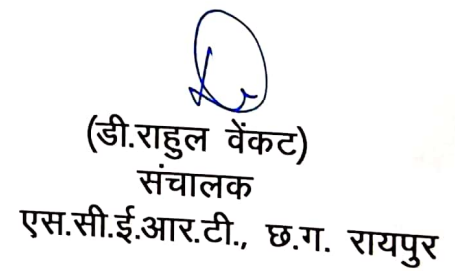 (डी.राहुल वेंकट)
संचालक
एस.सी.ई.आर.टी., छ.ग. रायपुर